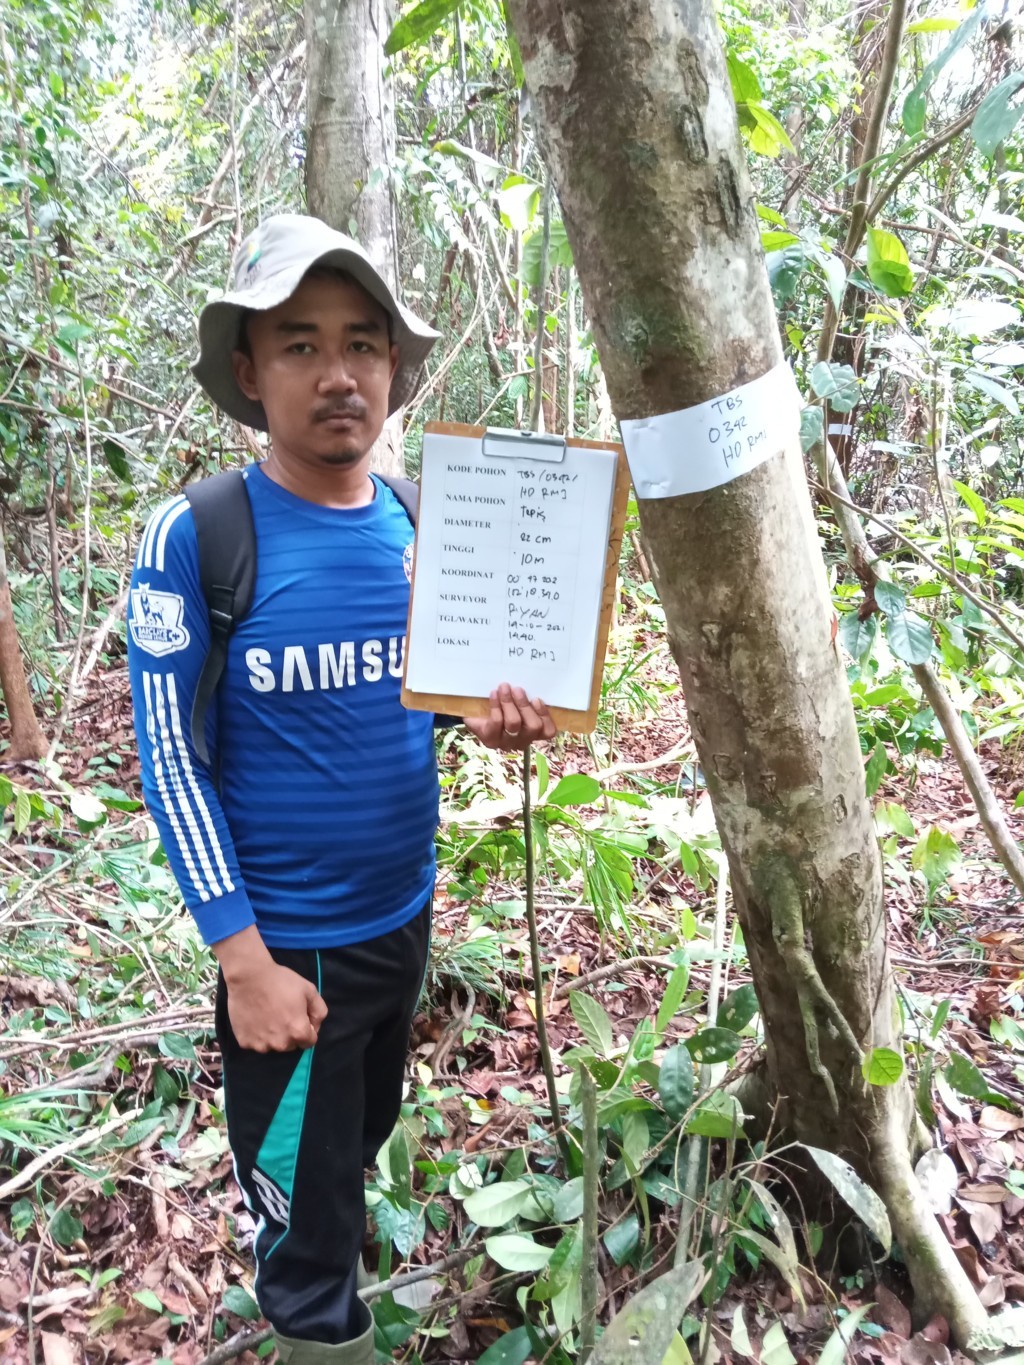 TBS
0392
HD RMJ
KODE POHON TBS/0392/
HD RMJ
NAMA POHON Tepis
DIAMETER 22 cm
TINGGI 10m
KOORDINAT 00 47 202
102 18 39.0
SURVEYOR RIYAN
TGL/WAKTU 19-10-2021
1440.
LOKASI HD RMJ
SAMSU
BARCLAYS